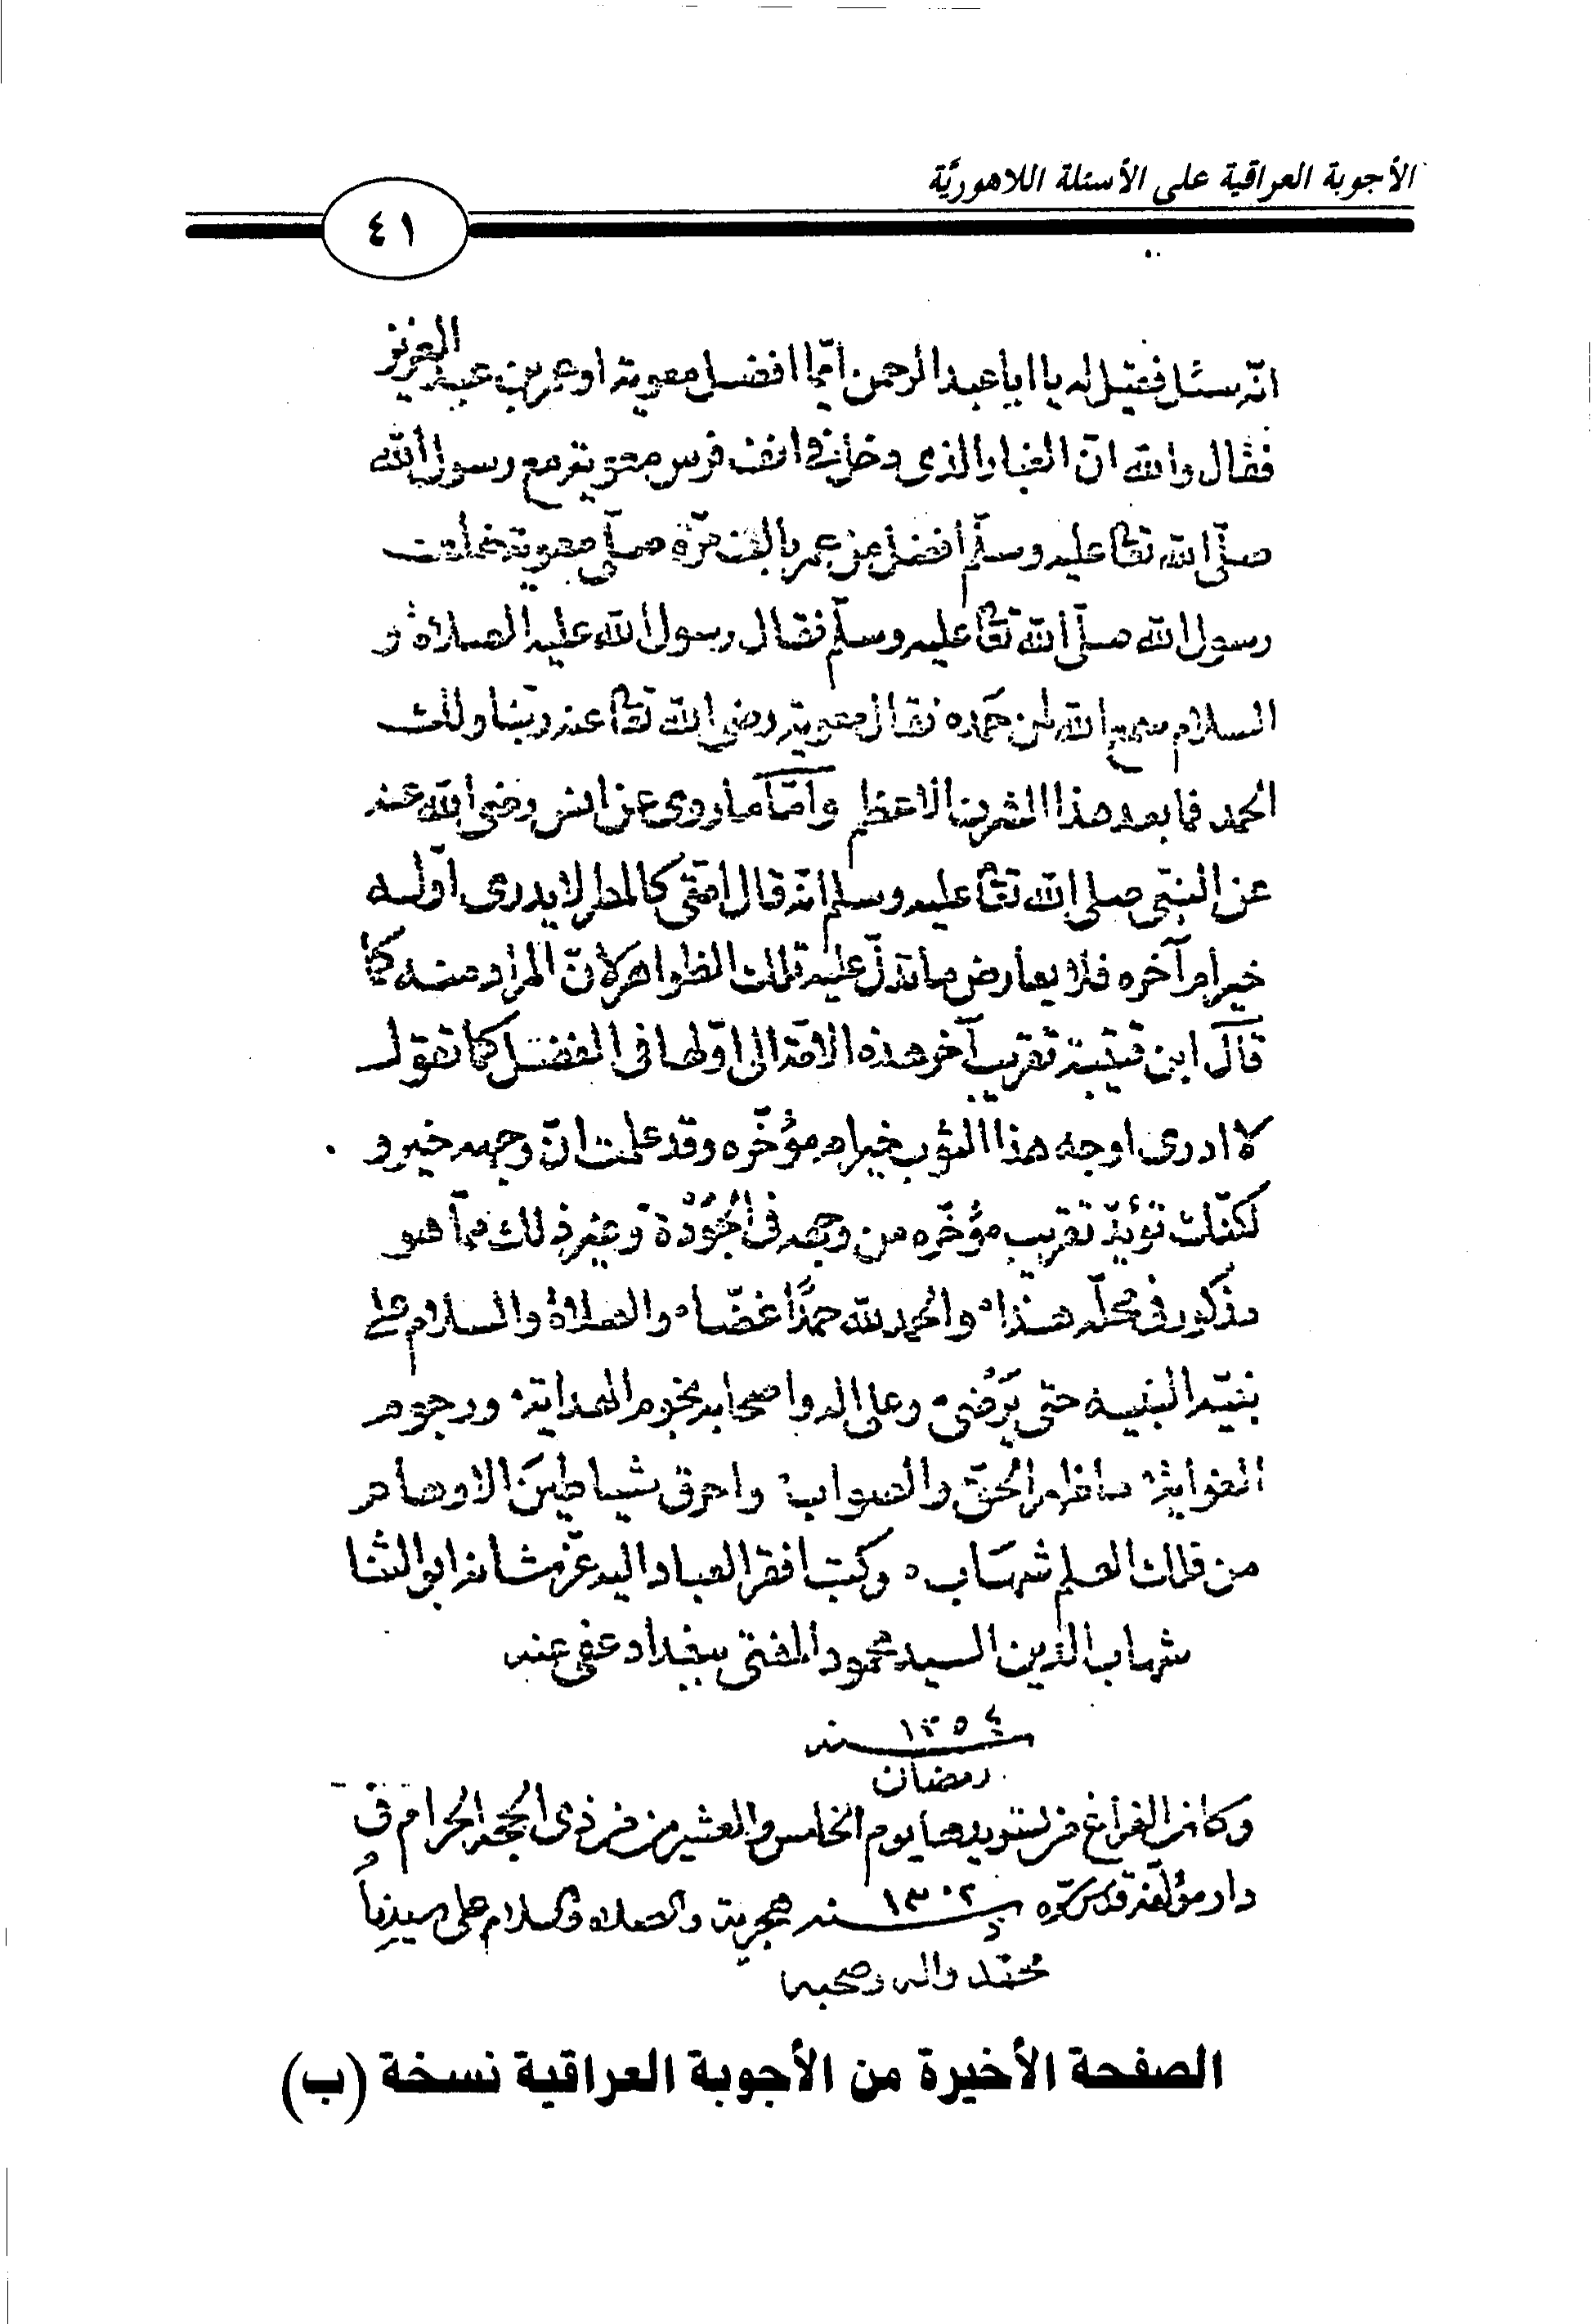 الأجوبة العراقية على الأسئلة اللاهوريَّة
٤١
انّه سئل فقيل له يا ابا عبد الرحمن ايّما افضل معوية او عمر بن عبد العزيز
فقال والله انّ الغبار الذى دخل فى انف فرس معوية مع رسول الله
صلّى الله تعا عليه وسلّم افضل من عمر بالف مرّة صلّى معوية خلف
رسول الله صلّى الله تعا عليه وسلّم فقال رسول الله عليه الصلاة و
السلام سمع الله لمن حمده فقال معوية رضى الله تعا عنه ربّنا ولك
الحمد فما بعد هذا الشرف الاعظم وامّا ما روى عن انس رضى الله عنه
عن النبىّ صلى الله تعا عليه وسلم انه قال امّتى كالمطر لا يدرى اوّله
خير ام آخره فلا يعارض ما تدلّ عليه تلك الظواهر لأنّ المراد منه كما
قال ابن قتيبة تقريب آخر هذه الامّة الى اوّلها فى الفضل كما تقول
لا ادرى اوجه هذا الثوب خير ام مؤخّره وقد علمت انّ وجهه خير و
لكنّك تؤيّد تقريب مؤخّره من وجهه فى الجُوْدَة وغير ذلك ممّا هو
مذكور فى محلّه هذا والحمد لله حمدًا غضّا والصلاة والسلام على
نبيّه النبيه حتى يَرْضى وعلى اله واصحابه نجوم الهداية ورجوم
الغواية ما ظهر الحقّ والصواب واحرق شياطينَ الاوهام
من فلك العلم شهَاب وكتب افقر العباد اليه عزّ شانه ابو الثنا
شهاب الدين السيد محمود المفتى ببغداد عفى عنه
سنه ١٢٥٤
رمضان
وكان الفراغ من تسويدها يوم الخامس والعشير من ذى الحجة الحرام فى
دار مؤلفه قدس سره سنه ١٣٠٢ هجرية والصلاه والسلام على سيدنا
محمد واله وصحبه
الصفحة الأخيرة من الأجوبة العراقية نسخة (ب)